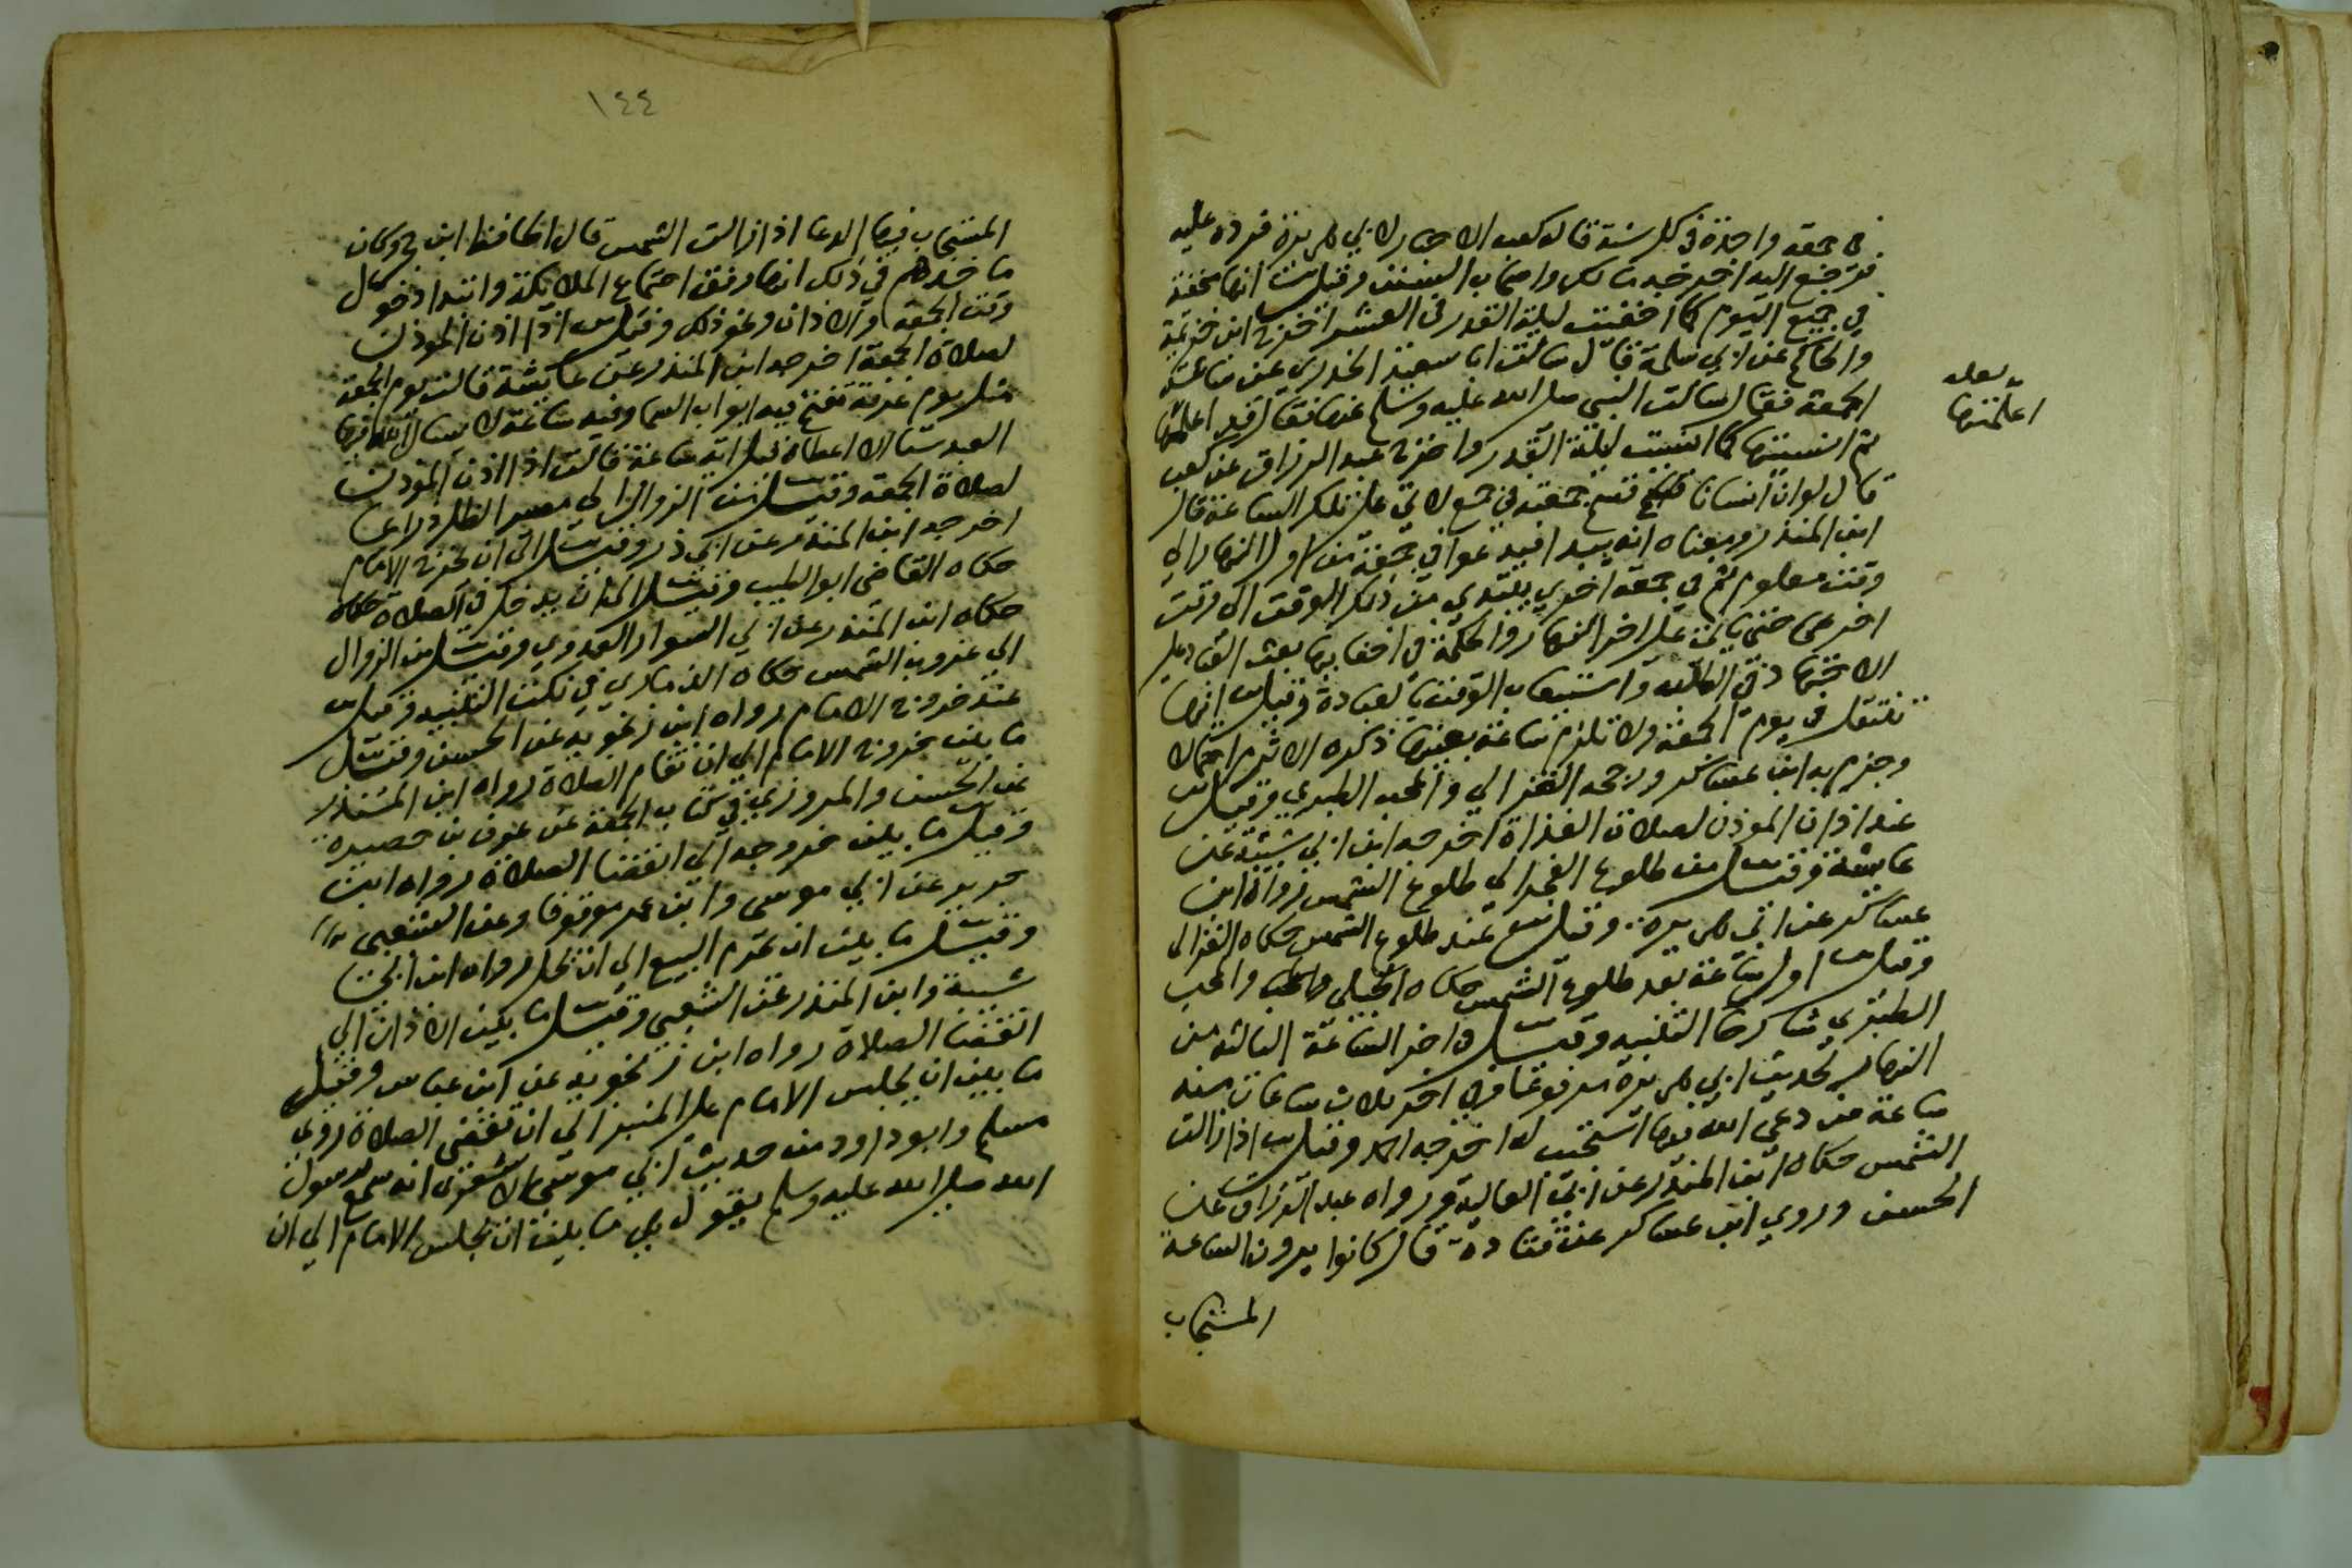 في جمعة واحدة في كل سنة قاله كعب الاحبار لابي هريرة فرده عليه
فرجع اليه اخرجه مالك واصحاب السنن وقيل انها مخفية
في جميع اليوم كما اخفيت ليلة القدر في العشر اخرج ابن خزيمة
والحاكم عن ابي سلمة قال سالت ابا سعيد الخدري عن ساعة
الجمعة فقال سالت النبي صلى الله عليه وسلم عنها فقال قد اعلمتها
ثم انسيتها كما انسيت ليلة القدر واخرج عبد الرزاق عن كعب
قال لو ان انسانا قسم جمعته في جمع لاتى على تلك الساعة قال
ابن المنذر ومعناه انه يبدا فيدعوا في جمعة من اول النهار الى
وقت معلوم ثم في جمعة اخرى يبتدي من ذلك الوقت الى وقت
اخر حتى ياتي على اخر النهار والحكمة في اخفايها بعث العباد على
الاجتهاد في الطلب واستيعاب الوقت بالعبادة وقيل انها
تنتقل في يوم الجمعة ولا تلزم ساعة بعينها ذكره الاثرم احتمالا
وجزم به ابن عساكر ورجحه الغزالي والمحب الطبري وقيل
عند اذان الموذن لصلاة الغداة اخرجه ابن ابي شيبة عن
عايشة وقيل من طلوع الفجر الى طلوع الشمس رواه ابن
عساكر عن ابي هريرة وقيل عند طلوع الشمس حكاه الغزالي
وقيل اول ساعة بعد طلوع الشمس حكاه الجيلي والمحب
الطبري شارحا التنبيه وقيل في اخر الساعة الثالثة من
النهار لحديث ابي هريرة مرفوعا في اخر ثلاث ساعات منه
ساعة من دعى الله فيها استجيب له اخرجه احمد وقيل اذا زالت
الشمس حكاه ابن المنذر عن ابي العالية ورواه عبد الرزاق عن
الحسن وروي ابن عساكر عن قتادة قال كانوا يرون الساعة
المستجاب
اعلمتها
١٤٤
المستجاب فيها الدعا اذا زالت الشمس قال الحافظ ابن حجر وكان
ماخذهم في ذلك انها وقت اجتماع الملايكة وابتدا دخول
وقت الجمعة والاذان ونحو ذلك وقيل اذا اذن الموذن
لصلاة الجمعة اخرجه ابن المنذر عن عايشة قالت يوم الجمعة
مثل يوم عرفة تفتح فيه ابواب السما وفيه ساعة لا يسال الله فيها
العبد شيا الا اعطاه قيل اية ساعة قالت اذا اذن الموذن
لصلاة الجمعة وقيل من الزوال الى مصير الظل ذراعا
اخرجه ابن المنذر عن ابي ذر وقيل الى ان يخرج الامام
حكاه القاضي ابو الطيب وقيل الى ان يدخل في الصلاة حكاه
حكاه ابن المنذر عن ابي السوار العدوي وقيل من الزوال
الى غروب الشمس حكاه الدزماري في نكت التنبيه وقيل
عند خروج الامام رواه ابن زنجويه عن الحسن وقيل
ما بين خروج الامام الى ان تقام الصلاة رواه ابن المنذر
عن الحسن والمروزي في كتاب الجمعة عن عوف بن حصيرة
وقيل ما بين خروجه الى انقضا الصلاة رواه ابن
جرير عن ابي موسى وابن عمر موقوفا وعن الشعبي
وقيل ما بين ان يحرم البيع الى ان يحل رواه ابن ابي
شيبة وابن المنذر عن الشعبي وقيل ما بين الاذان الى
انقضا الصلاة رواه ابن زنجويه عن ابن عباس وقيل
ما بين ان يجلس الامام على المنبر الى ان تقضى الصلاة روي
مسلم وابو داود من حديث ابي موسى الاشعري انه سمع رسول
الله صلى الله عليه وسلم يقول هي ما بين ان يجلس الامام الي ان